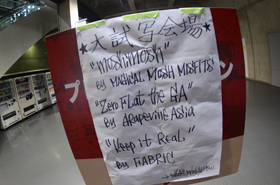 ★大試写会場★
"moshimosh"
by MAGICAL MOSH MISFITS
"Zero Flat the GA"
by Grapevine Asia
"Keep it Real"
by FABRIC
プ
ン